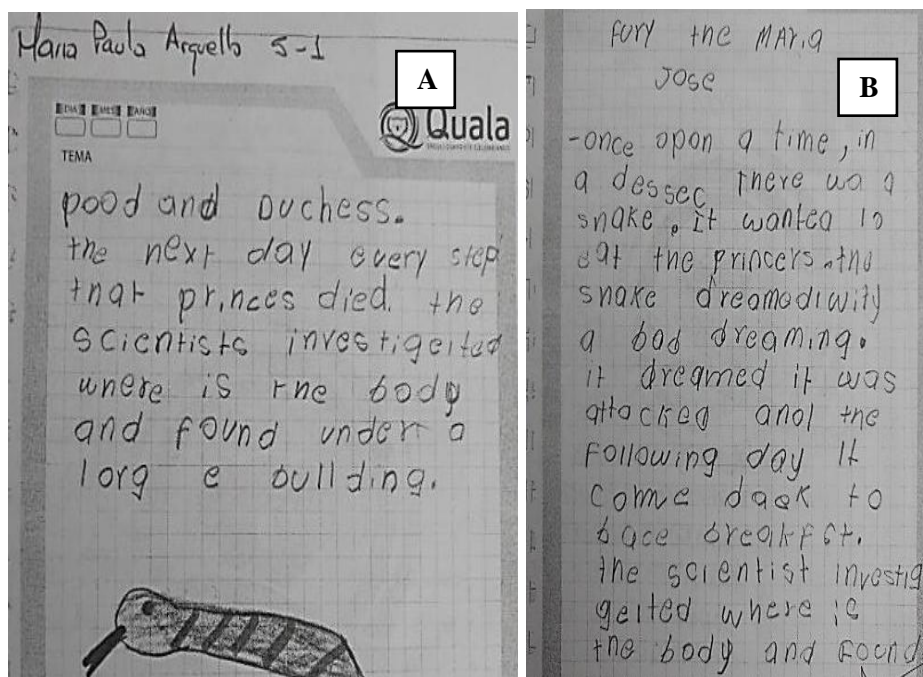 Maria Paula Arguello 5-1
A
DIA MES AÑO
Quala
TEMA
pood and Duchess.
the next day every step
that princes died. the
scientists investigeited
where is the body
and found under a
larg e building.
fury the MAria
Jose
B
-once opon a time, in
a dessec there wa a
snake. It wanted to
eat the princers. the
snake dreamed
a bad dreaming.
it dreamed it was
attacked and the
Following day It
come back to
breakfct.
the scientist investig
geited where is
the body and found